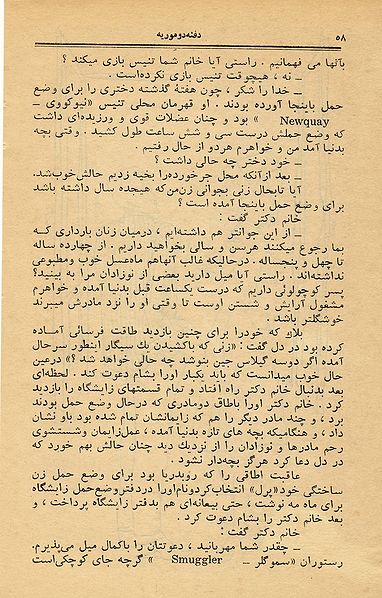 ۵۸
دفنه دوموریه
بآنها می فهمانیم . راستی آیا خانم شما تنیس بازی میکند ؟
ــ نه ، هیچوقت تنیس بازی نکرده است .
ــ خدا را شکر ، چون هفتهٔ گذشته دختری را برای وضع
حمل باینجا آورده بودند . او قهرمان محلی تنیس «نیوکووی ــ
Newquay » بود و چنان عضلات قوی و ورزیده‌ای داشت
که وضع حملش درست سی و شش ساعت طول کشید . وقتی بچه
بدنیا آمد من و خواهرم هردو از حال رفتیم .
ــ خود دختر چه حالی داشت ؟
ــ بعد ازآنکه محل جرخورده‌را بخیه زدیم حالش‌خوب‌شد.
آیا تابحال زنی بجوانی زن‌من‌که هیجده سال داشته باشد
برای وضع حمل باینجا آمده است ؟
خانم دکتر گفت :
ــ از این جوانتر هم داشته‌ایم ، درمیان زنان بارداری که
بما رجوع میکنند هرسن و سالی بخواهید داریم . از چهارده ساله
تا چهل و پنجساله . درحالیکه غالب آنهاهم ماه‌عسل خوب ومطبوعی
نداشته‌اند . راستی آیا میل دارید بعضی از نوزادان مرا به بینید؟
پسر کوچولوئی داریم که درست یکساعت قبل بدنیا آمده و خواهرم
مشغول آرایش و شستن اوست تا وقتی او را نزد مادرش میبرند
خوشگلتر باشد .
بلاك که خودرا برای چنین بازدید طاقت فرسائی آمـاده
کرده بود در دل گفت : «زنی که باکشیدن یك سیگار اینطور سرحال
آمده اگر دوسه گیلاس جین بنوشد چه حالی خواهد شد ؟» درعین
حال خوب میدانست که باید یکبار اورا بشام دعوت کند . لحظه‌ای
بعد بدنبال خانم دکتر راه افتاد و تمام قسمتهای زایشگاه را بازدید
کرد . خانم دکتر اورا باطاق دومادری که درحال وضع حمل بودند
برد ، و چند مادر دیگر را هم که زایمانشان تمام شده بود باو نشان
داد ، و هنگامیکه بچه های تازه بدنیا آمده ، عمل‌زایمان وشستشوی
رحم مادرها و نوزادان را از نزدیك دید چنان حالش بهم خورد که
در دل دعا کرد هرگز بچه‌دار نشود .
عاقبت اطاقی را که روبدریا بود برای وضع حمل زن
ساختگی خود«پرل» انتخاب‌کردونام‌اورا دردفتروضع‌حمل زایشگاه
برای ماه مه نوشت ، حتی بیعانه‌ای هم بدفتر زایشگاه پرداخت ، و
بعد خانم دکتر را بشام دعوت کرد .
خانم دکتر گفت :
ــ چقدر شما مهربانید ، دعوتتان را باکمال میل می‌پذیرم.
رستوران «سموگلر ــ Smuggler » گرچه جای کوچکی‌است